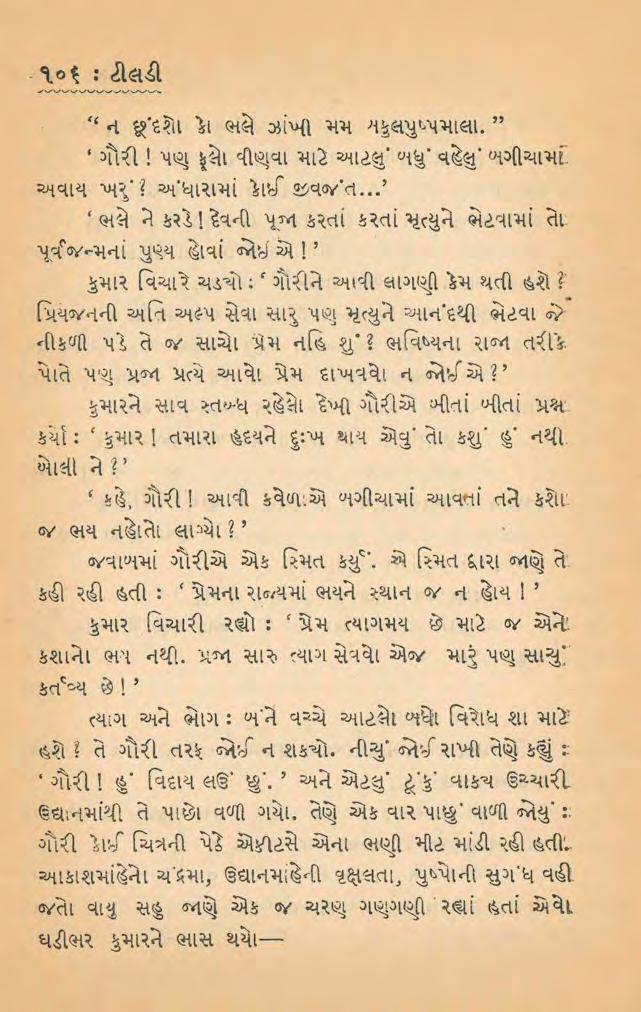 ૧૦૬ : ટીલડી
“ ન છૂંદશો કો ભલે ઝાંખી મમ બકુલપુષ્પમાલા. ”
‘ ગૌરી ! પણ ફૂલો વીણવા માટે આટલું બધું વહેલું બગીચામાં
અવાય ખરું ? અંધારામાં કોઈ જીવજંત...’
‘ ભલે ને કરડે ! દેવની પૂજા કરતાં કરતાં મૃત્યુને ભેટવામાં તો
પૂર્વજન્મનાં પુણ્ય હોવાં જોઈએ ! ’
કુમાર વિચારે ચડ્યો : ‘ ગૌરીને આવી લાગણી કેમ થતી હશે ?
પ્રિયજનની અતિ અલ્પ સેવા સારુ પણ મૃત્યુને આનંદથી ભેટવા જે
નીકળી પડે તે જ સાચો પ્રેમ નહિ શું ? ભવિષ્યના રાજા તરીકે
પોતે પણ પ્રજા પ્રત્યે આવો પ્રેમ દાખવવો ન જોઈએ ?’
કુમારને સાવ સ્તબ્ધ રહેલો દેખી ગૌરીએ બીતાં બીતાં પ્રશ્ન
કર્યો : ‘ કુમાર ! તમારા હૃદયને દુઃખ થાય એવું તો કશું હું નથી
બોલી ને ?’
‘ કહે, ગૌરી ! આવી કવેળાએ બગીચામાં આવતાં તને કશો
જ ભય નહોતો લાગ્યો ?’
જવાબમાં ગૌરીએ એક સ્મિત કર્યું. એ સ્મિત દ્વારા જાણે તે
કહી રહી હતી : ‘ પ્રેમના રાજ્યમાં ભયને સ્થાન જ ન હોય ! ’
કુમાર વિચારી રહ્યો : ‘ પ્રેમ ત્યાગમય છે માટે જ એને
કશાનો ભય નથી. પ્રજા સારુ ત્યાગ સેવવો એજ મારું પણ સાચું
કર્તવ્ય છે ! ’
ત્યાગ અને ભોગ : બંને વચ્ચે આટલો બધો વિરોધ શા માટે
હશે ? તે ગૌરી તરફ જોઈ ન શક્યો. નીચું જોઈ રાખી તેણે કહ્યું :
‘ ગૌરી ! હું વિદાય લઉં છું. ’ અને એટલું ટૂંકું વાક્ય ઉચ્ચારી
ઉદ્યાનમાંથી તે પાછો વળી ગયો. તેણે એક વાર પાછું વાળી જોયું :
ગૌરી કોઈ ચિત્રની પેઠે એકીટસે એના ભણી મીટ માંડી રહી હતી.
આકાશમાંહેનો ચંદ્રમા, ઉદ્યાનમાંહેની વૃક્ષલતા, પુષ્પોની સુગંધ વહી
જતો વાયુ સહુ જાણે એક જ ચરણ ગણગણી રહ્યાં હતાં એવો
ઘડીભર કુમારને ભાસ થયો—